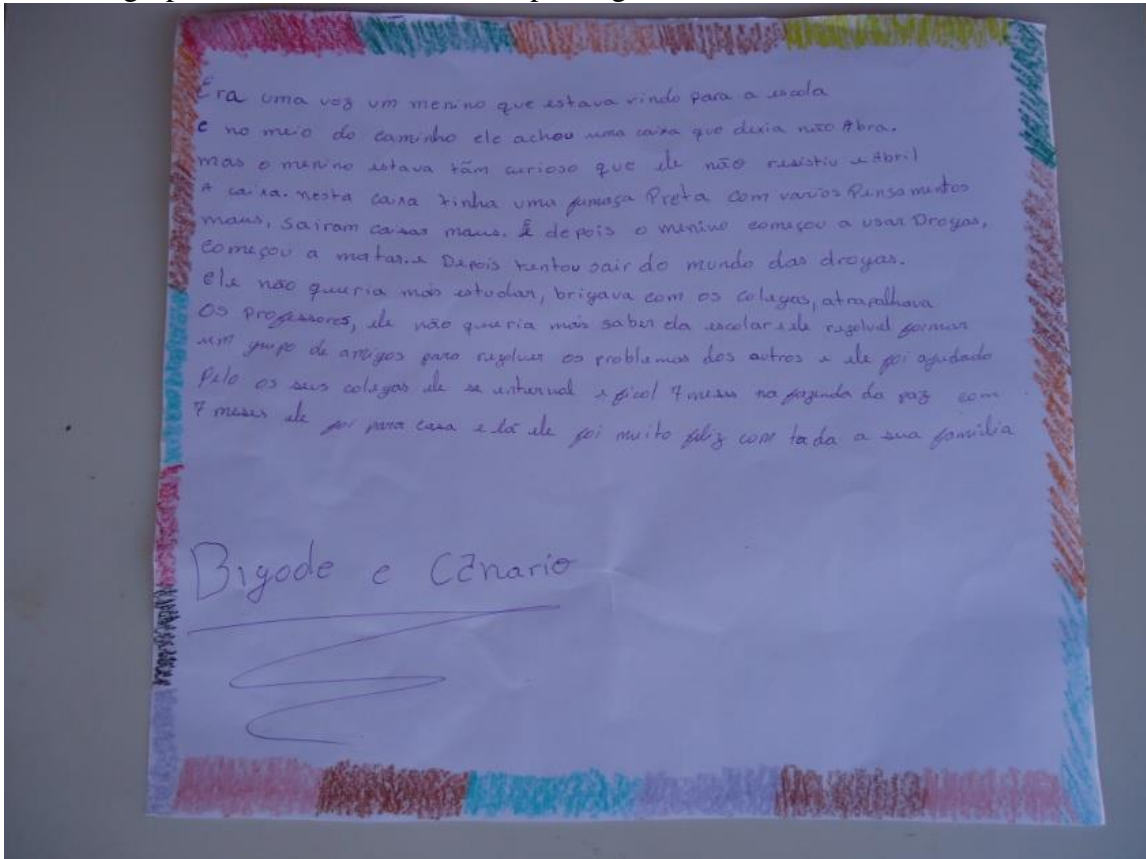 Éra uma vez um menino que estava vindo para a escola
e no meio do caminho ele achou uma caixa que dizia não Abra.
mas o menino estava tãm curioso que ele não resistiu e Abril
A caixa. nesta caixa tinha uma fumaça Preta com varios Pensamentos
maus, sairam coisas maus. É depois o menino começou a usar Drogas,
começou a matar. e Depois tentou sair do mundo das drogas.
ele não queria mais estudar, brigava com os colegas, atrapalhava
Os professores, ele não queria mais saber da escolar e ele rezolvel formar
um grupo de amigos para rezolver os problemas dos outros e ele foi ajudado
Pelo os seus colegas ele se internal e ficol 7 meses na fazenda da paz com
7 meses ele foi para casa e lá ele foi muito feliz com toda a sua familia
Bigode e Cãnario